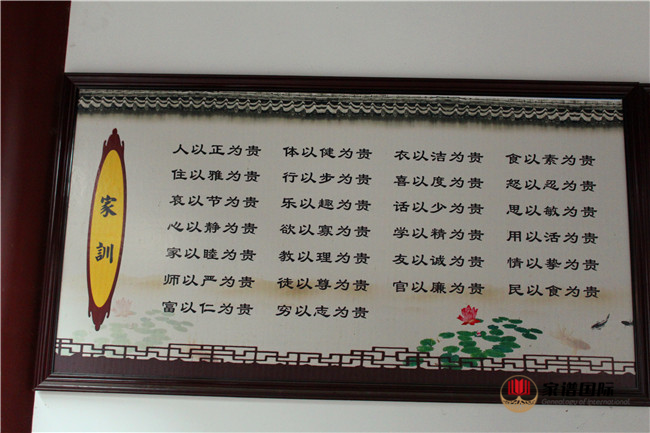 家訓
人以正为贵 体以健为贵 衣以洁为贵 食以素为贵
住以雅为贵 行以步为贵 喜以度为贵 怒以忍为贵
哀以节为贵 乐以趣为贵 话以少为贵 思以敏为贵
心以静为贵 欲以寡为贵 学以精为贵 用以活为贵
家以睦为贵 教以理为贵 友以诚为贵 情以挚为贵
师以严为贵 徒以尊为贵 官以廉为贵 民以食为贵
富以仁为贵 穷以志为贵
家谱国际
Genealogy of International